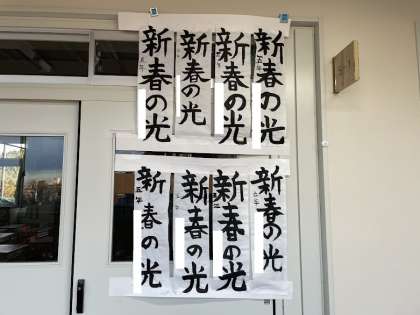 新春の光
五年
新春の光
新春の光
新春の光
五年
新春の光
五年
新春の光
新春の光
新春の光